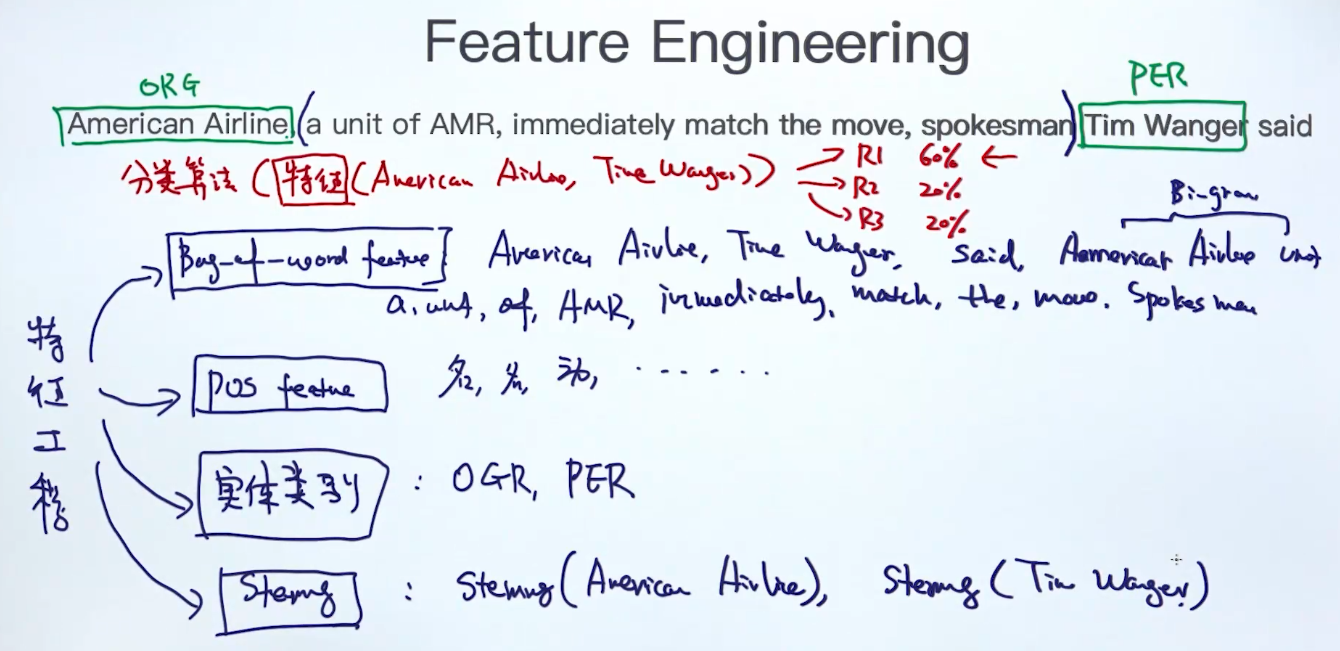 Feature Engineering
ORG
PER
American Airline, (a unit of AMR, immediately match the move, spokesman) Tim Wanger said
分类算法 (特征 (American Airline, Time Wanger)) R1 60% ←
R2 20%
R3 20%
Bi-gram
Bag-of-word feature American Airline, Time Wager, said, Aamerican Airline unit
a, unit, of, AMR, immediately, match, the, move. Spokes man
特征工程
POS feature 名, 名, 动, ......
实体类别 : OGR, PER
Steming : Steming (American Airline), Steming (Tim Wanger)